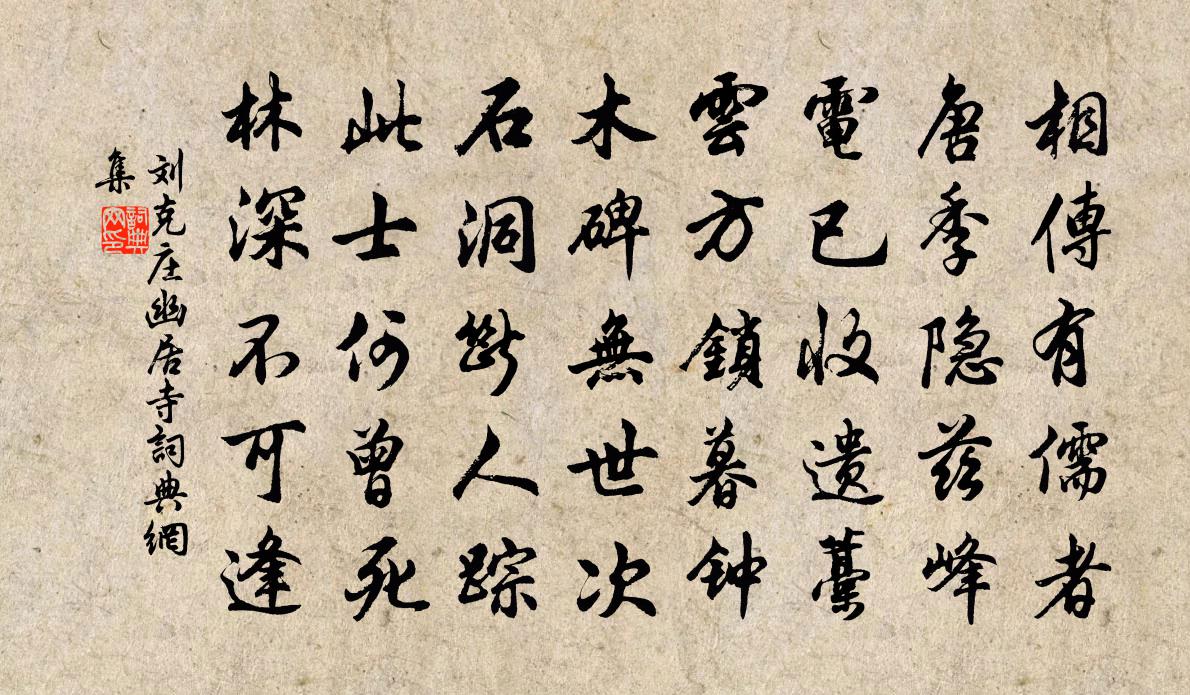 相傳有儒者
唐季隐兹峰
電已收遗藁
雲方鎖暮钟
木碑無世次
石洞斷人踪
此士何曾死
林深不可逢
刘克庄幽居寺詞典網
集
詞典
网印